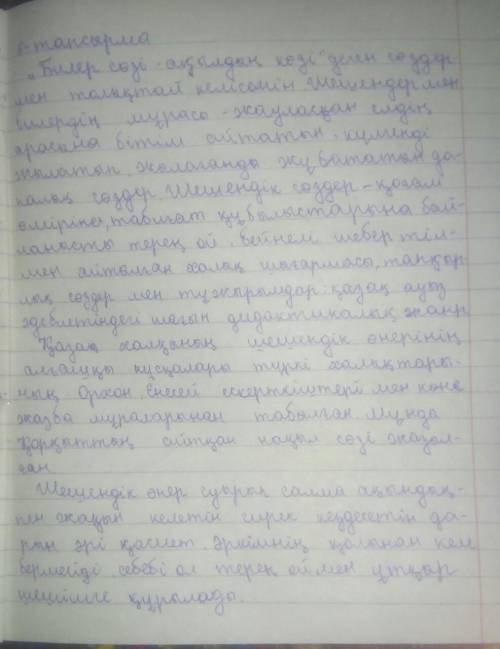 8-тапсырма
„Билер сөзі - ақылдың көзі" деген сөздер-
мен толықтай келісемін. Шешендер мен
билердің мұрасы - жауласқан елдің
арасына бітім айтатын, күлгенді
жылатып, жылағанды жұбататын да-
налық сөздер. Шешендік сөздер - қоғам
өміріне, табиғат құбылыстарына бай-
ланысты терең ой, бейнелі шебер тіл-
мен айтылған халық шығармасы, тапқыр-
лық сөздер мен тұжырымдар: қазақ ауыз
әдебиетіндегі шағын дидактикалық жанр
Қазақ халқының шешендік өнерінің
алғашқы нұсқалары түркі халықтары-
ның Орхон, Енесей ескерткіштері мен көне
жазба мұраларынан табылған. Мұнда
Қорқыттың айтқан нақыл сөзі жазыл-
ған
Шешендік өнер суырып салма ақындық-
пен жақын келетін сирек кездесетін да-
рын әрі қасиет. Әркімнің қолынан келе
бермейді, себебі ол терең ой мен ұтқыр
шешімге құрылады.